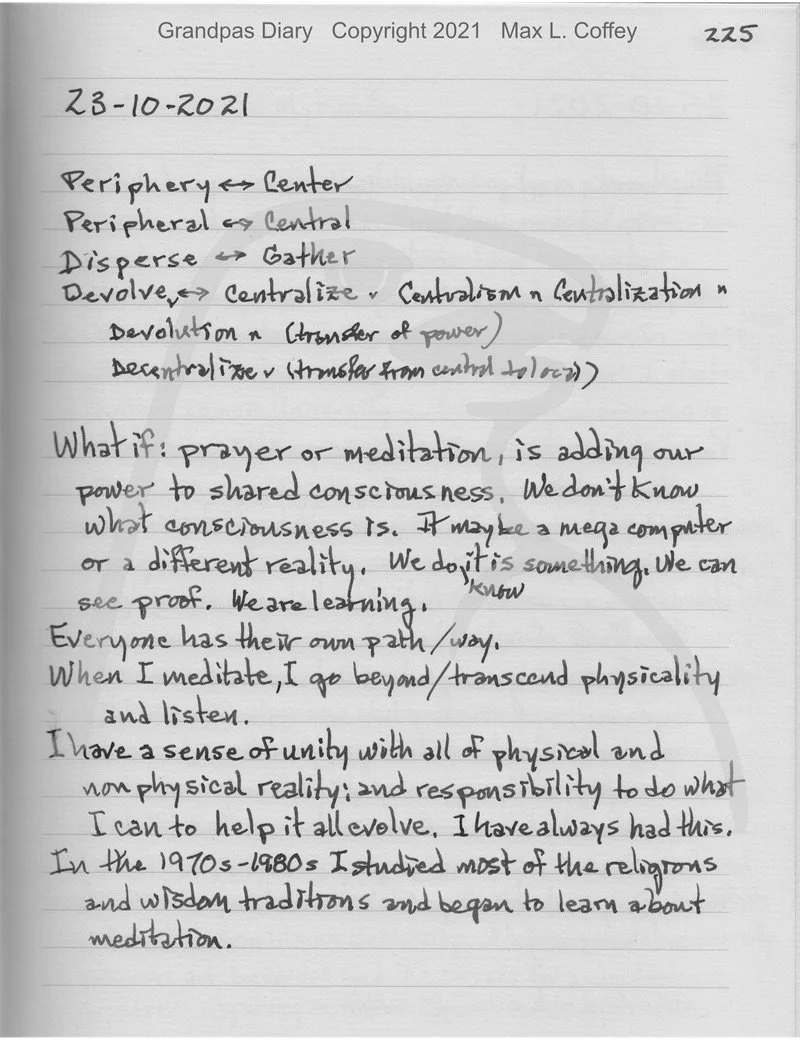 Grandpas Diary Copyright 2021 Max L. Coffey 225
23-10-2021
Periphery ↔ Center
Peripheral ↔ Central
Disperse ↔ Gather
Devolve v ↔ Centralize v Centralism n Centralization n
Devolution n (transfer of power)
Decentralize v (transfer from central to local)
What if: prayer or meditation, is adding our
power to shared consciousness. We don't know
what consciousness is. It may be a mega computer
or a different reality. We do know it is something. We can
see proof. We are learning.
Everyone has their own path/way.
When I meditate, I go beyond/transcend physicality
and listen.
I have a sense of unity with all of physical and
non physical reality; and responsibility to do what
I can to help it all evolve. I have always had this.
In the 1970s-1980s I studied most of the religions
and wisdom traditions and began to learn about
meditation.